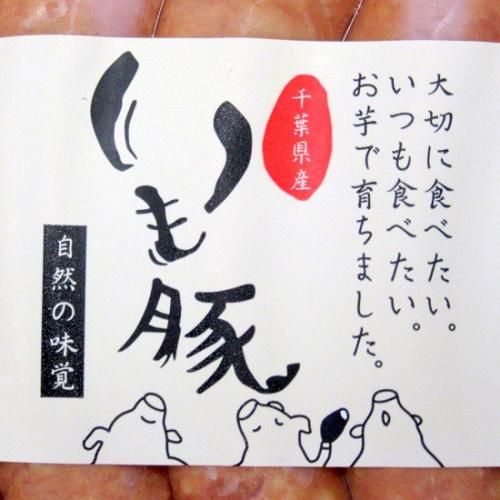 大切に食べたい。
いつも食べたい。
お芋で育ちました。
千葉県産
いも豚
自然の味覚